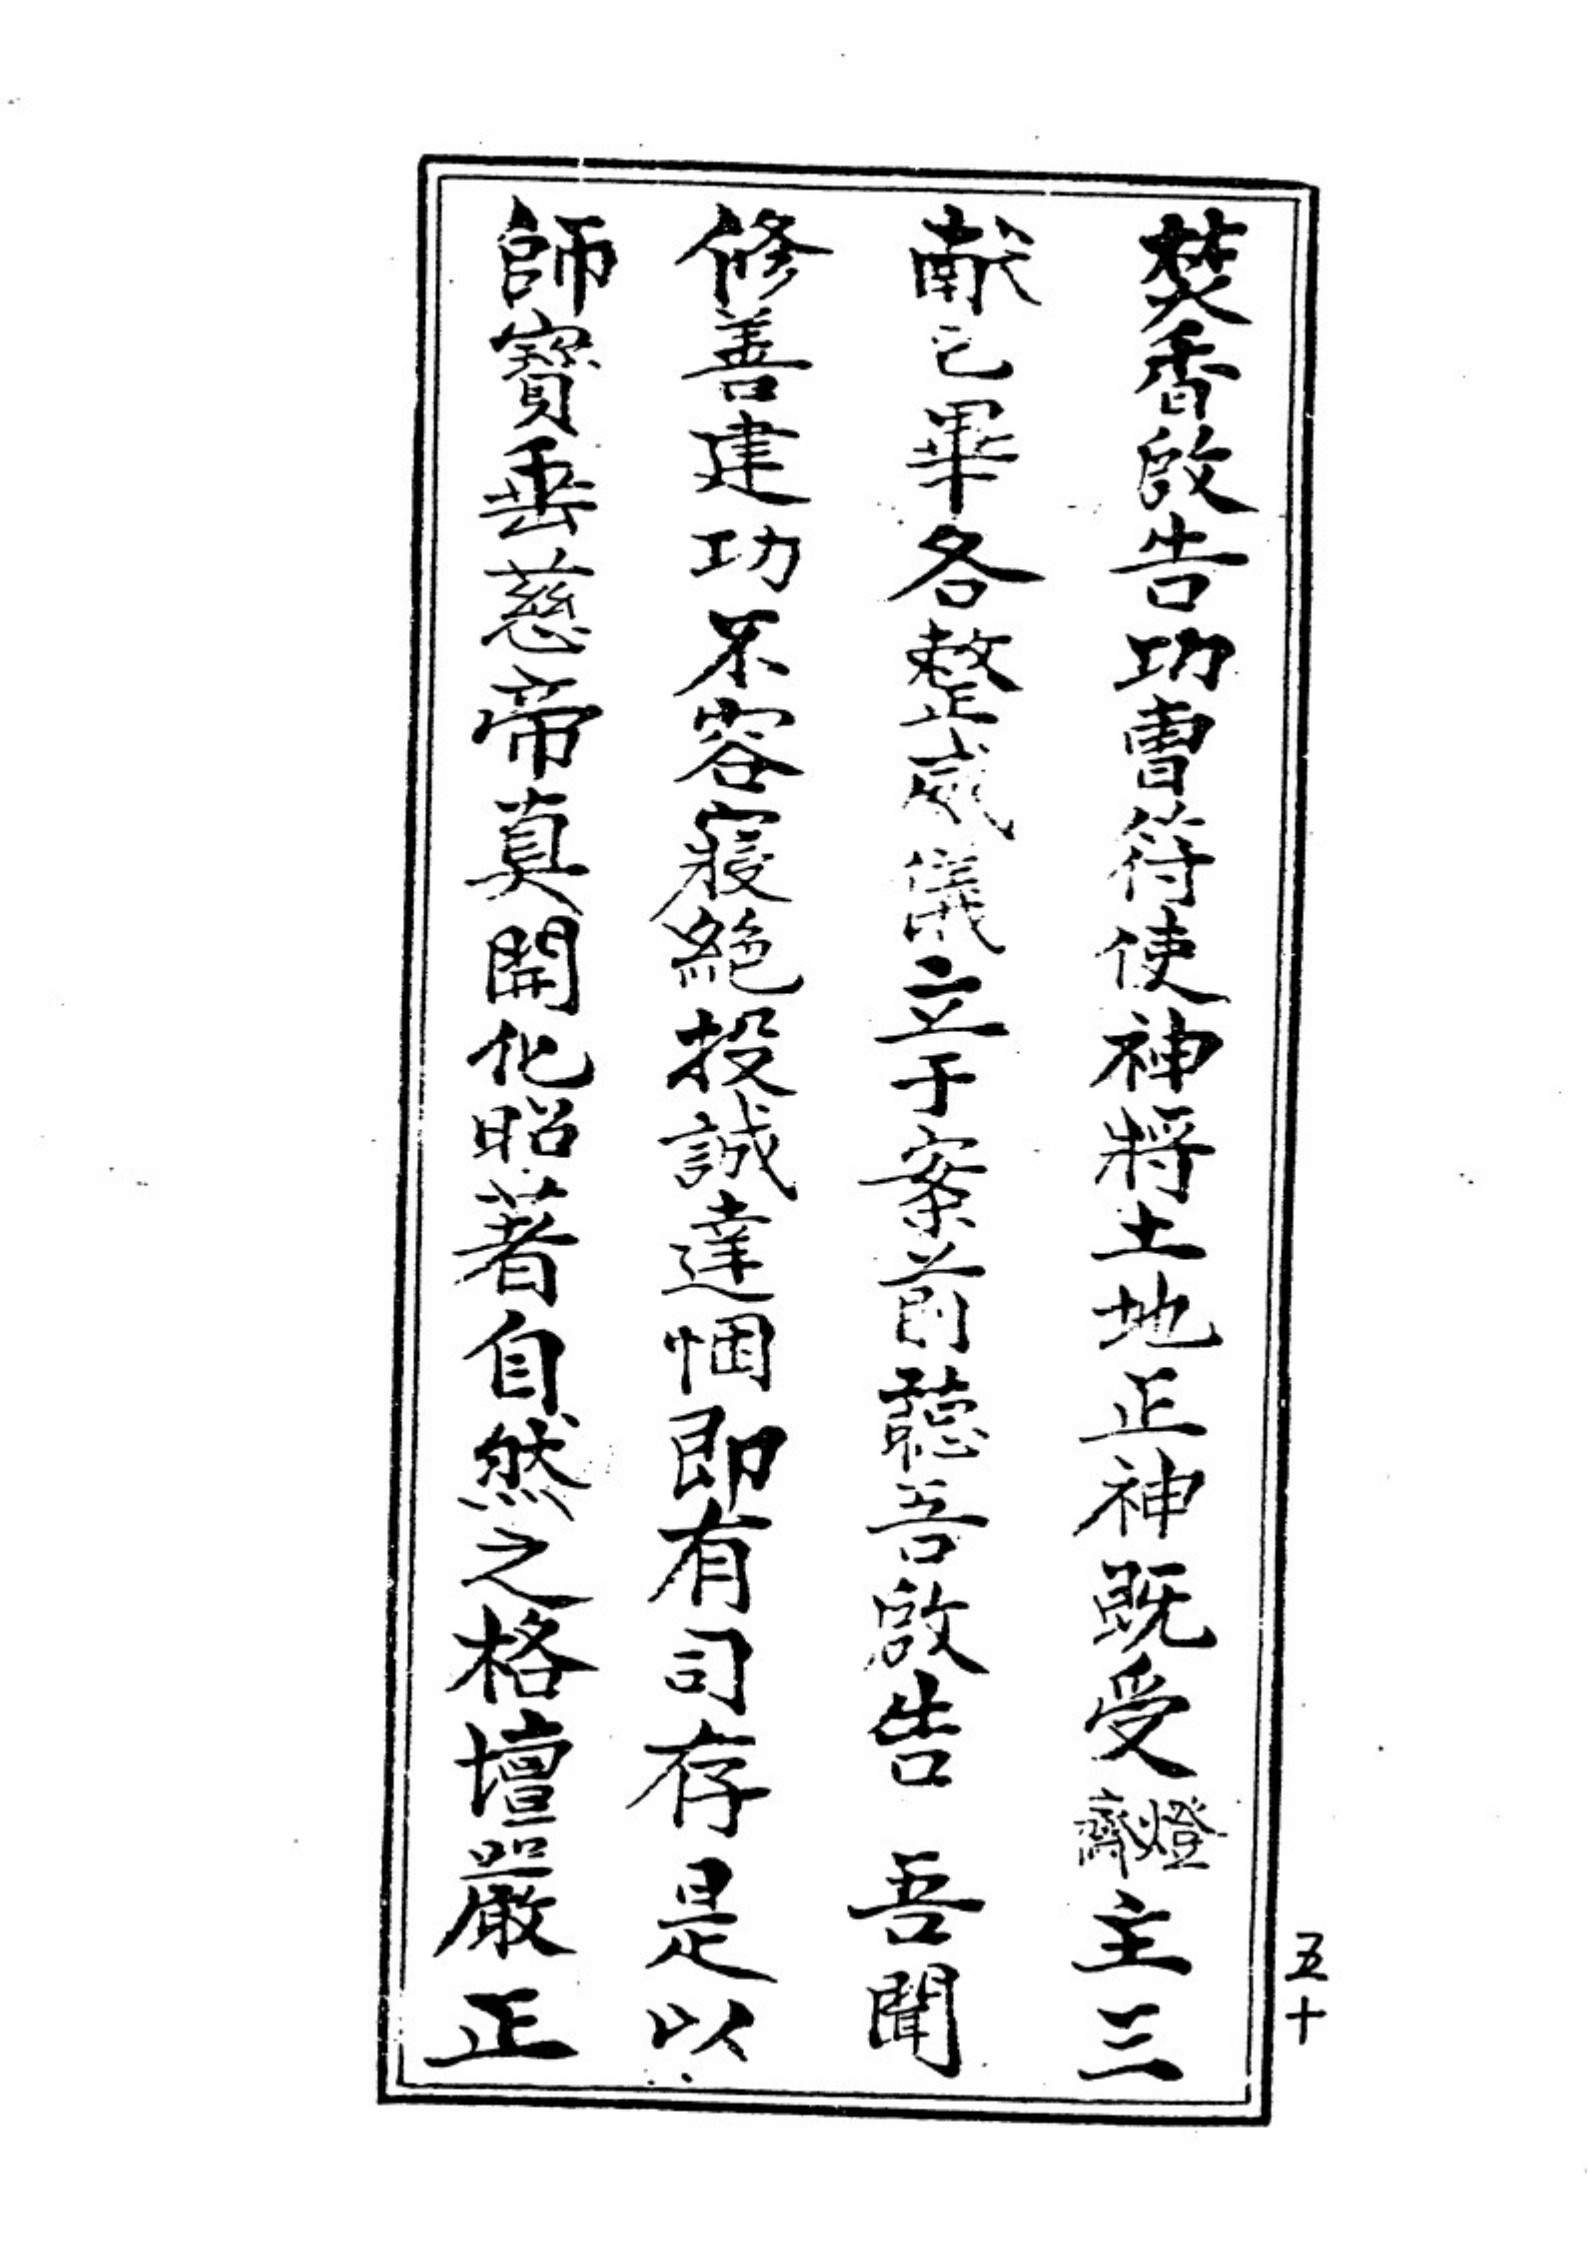 焚香啟告功曹符使神將土地正神既受燈齋主三
獻已畢各整威儀立于案前聽吾啟告 吾聞
修善建功不容寢絕投誠達悃即有司存是以
師寶垂慈帝真開化昭著自然之格壇嚴正
五十